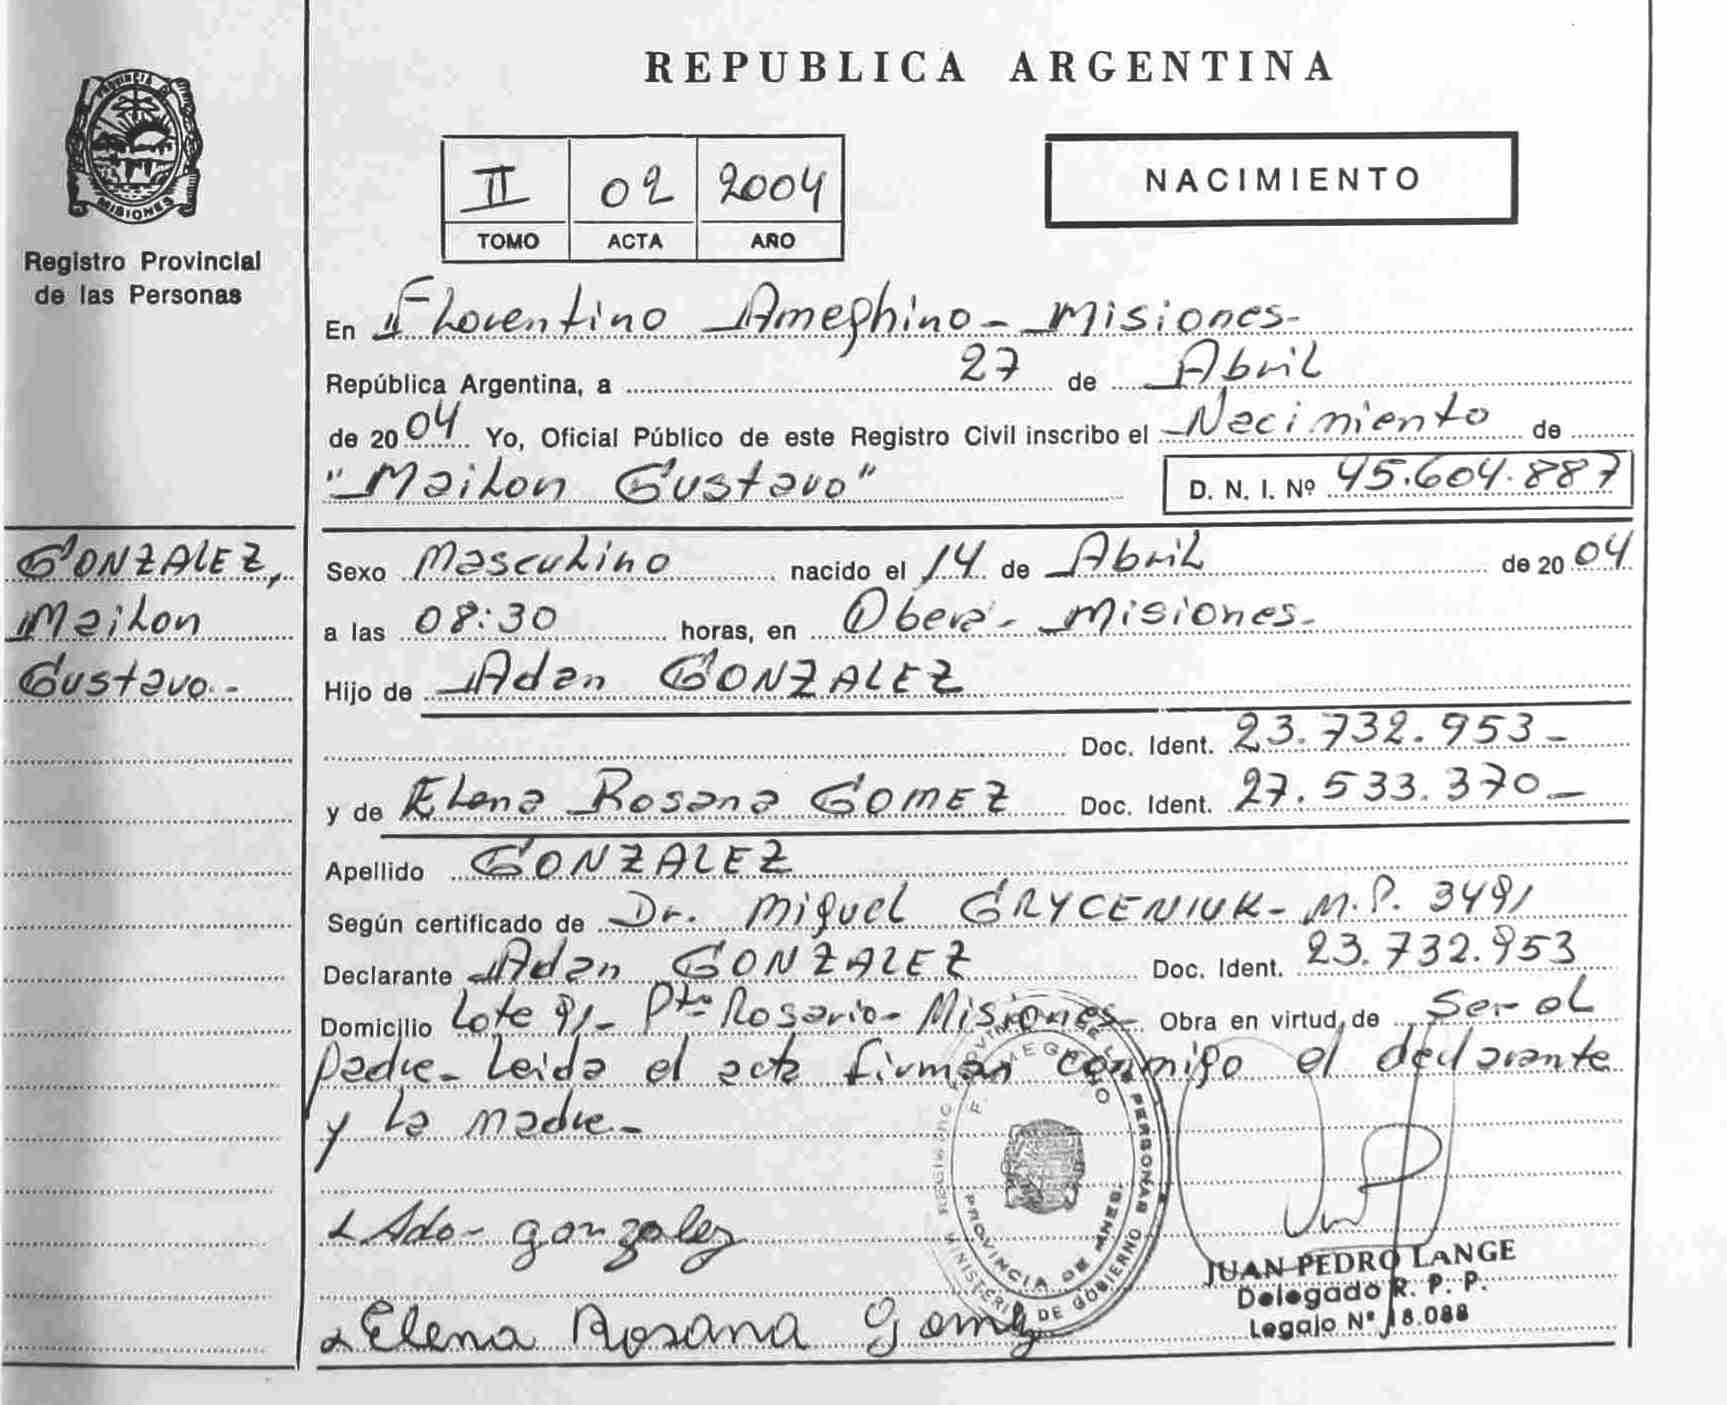 REPUBLICA ARGENTINA
PROVINCIA D
MISIONES
Registro Provincial
de las Personas
II 02 2004
TOMO ACTA AÑO
NACIMIENTO
En Florentino Ameghino - Misiones-
República Argentina, a 27 de Abril
de 2004 Yo, Oficial Público de este Registro Civil inscribo el Nacimiento de
"Mailon Gustavo" D. N. I. Nº 45.604.887
GONZALEZ,
Mailon
Gustavo.-
Sexo Masculino nacido el 14 de Abril de 2004
a las 08:30 horas, en Oberá - Misiones-
Hijo de Adan GONZALEZ
Doc. Ident. 23.732.953-
y de Elena Rosana GOMEZ Doc. Ident. 27.533.370-
Apellido GONZALEZ
Según certificado de Dr. Miguel GRYCENIUK- M.P. 3491
Declarante Adan GONZALEZ Doc. Ident. 23.732.953
Domicilio Lote 91- Pto Rosario- Misiones- Obra en virtud de Ser el
padre- Leida el acta firman conmigo el declarante
y la madre-
Ado- gonzalez
Elena Rosana Gomez
PROVINCIA DE MNES.
MINISTERIO DE GOBIERNO
JUAN PEDRO LANGE
Delegado R. P. P.
Legajo Nº 18.088